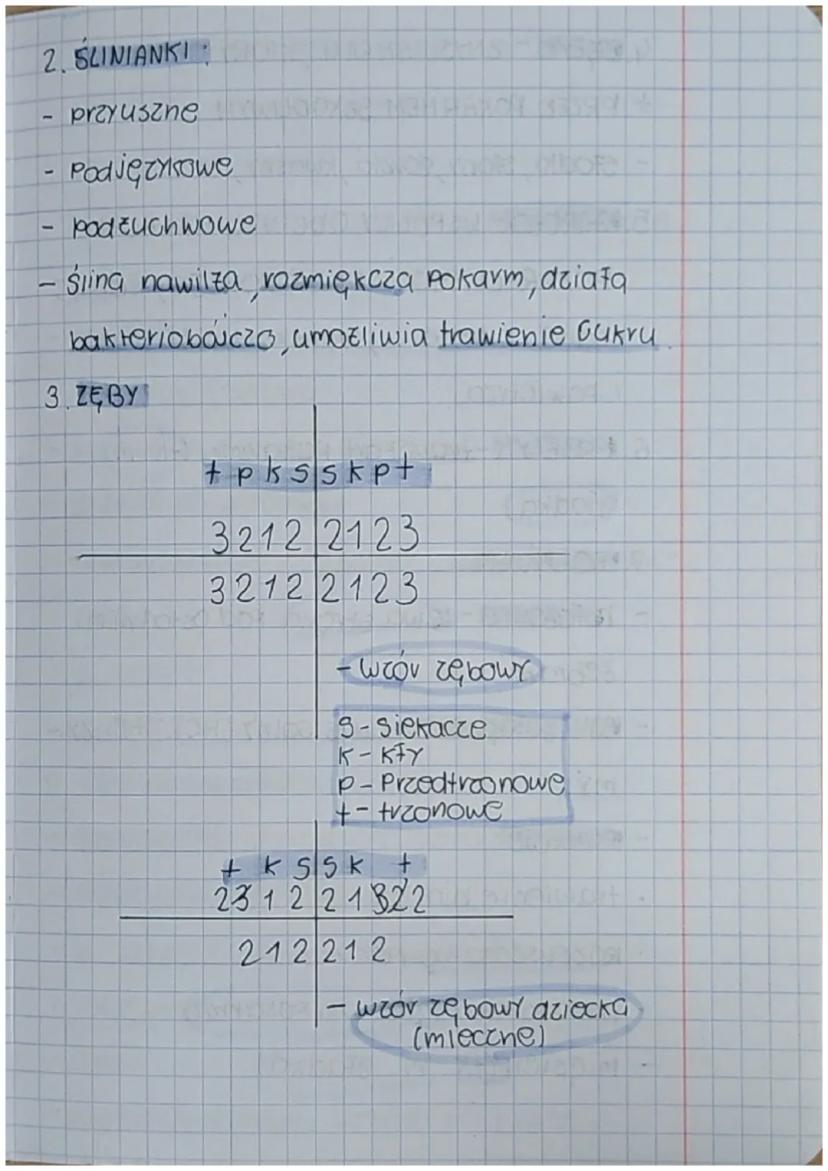 2. ŚLINIANKI:
- przyuszne
- Podjęzykowe
- podżuchwowe
- ślina nawilża, rozmiękcza pokarm, działa
bakteriobójczo, umożliwia trawienie cukru.
3. ZĘBY
t p k s s k p t
3 2 1 2 2 1 2 3
3 2 1 2 2 1 2 3
- wzór zębowy
s - siekacze
k - kły
p - Przedtrzonowe
t - trzonowe
t k s s k t
2 1 2 2 1 2
2 1 2 2 1 2
- wzór zębowy dziecka
(mleczne)